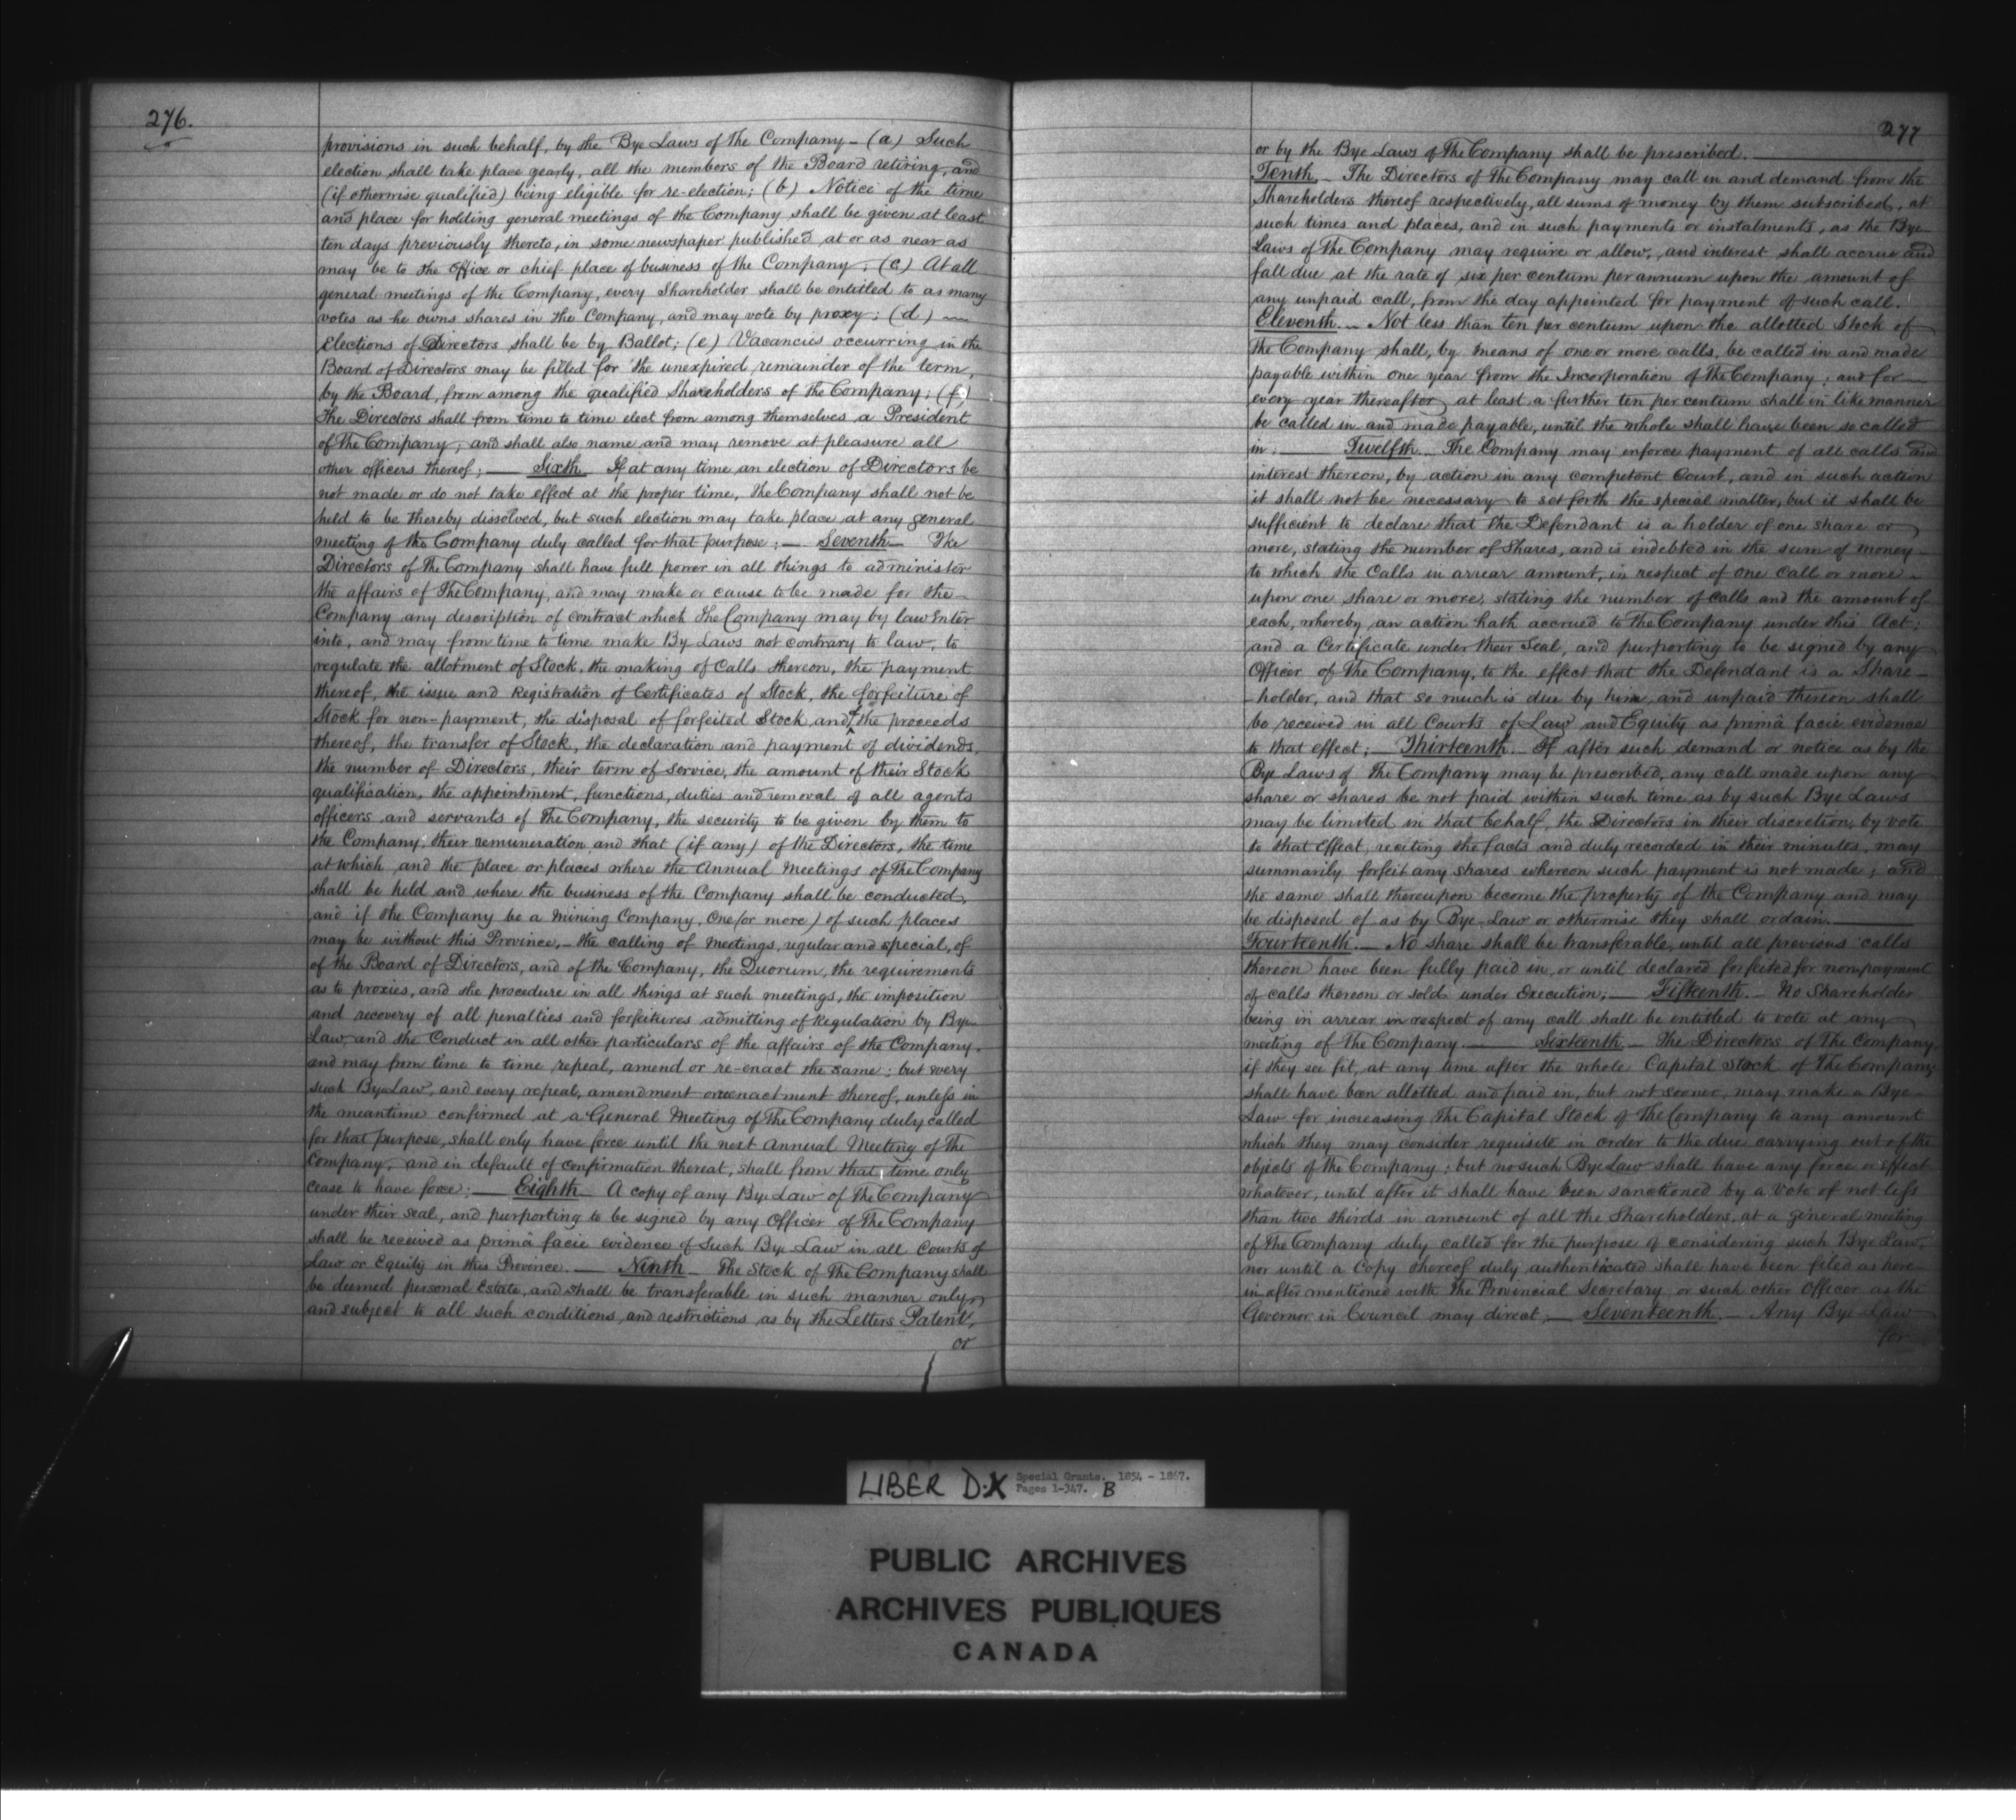 276.
provisions in such behalf, by the Bye Laws of the Company – (a) Such
election shall take place yearly, all the members of the Board retiring, and
(if otherwise qualified) being eligible for re-election; (b) Notice of the time
and place for holding general meetings of the Company shall be given at least
ten days previously thereto, in some newspaper published at or as near as
may be to the office or chief place of business of the Company; (c) At all
general meetings of the Company, every Shareholder shall be entitled to as many
votes as he owns shares in the Company, and may vote by proxy; (d) —
Elections of Directors shall be by Ballot; (e) Vacancies occurring in the
Board of Directors may be filled for the unexpired remainder of the term,
by the Board, from among the qualified Shareholders of the Company; (f)
The Directors shall from time to time elect from among themselves a President
of The Company; and shall also name and may remove at pleasure all
other officers thereof; — Sixth – If at any time an election of Directors be
not made or do not take effect at the proper time, the Company shall not be
held to be thereby dissolved, but such election may take place at any general
meeting of the Company duly called for that purpose; — Seventh – The
Directors of The Company shall have full power in all things to administer
the affairs of The Company, and may make or cause to be made for the
Company any description of contract which The Company may by law enter
into, and may from time to time make By Laws not contrary to law, to
regulate the allotment of Stock, the making of Calls thereon, the payment
thereof, the issue and Registration of Certificates of Stock, the forfeiture of
Stock for non-payment, the disposal of forfeited Stock and of the proceeds
thereof, the transfer of Stock, the declaration and payment of dividends,
the number of Directors, their term of service, the amount of their Stock
qualification, the appointment, functions, duties and removal of all agents
officers and servants of The Company, the security to be given by them to
the Company, their remuneration and that (if any) of the Directors, the time
at which, and the place or places where the Annual Meetings of The Company
shall be held and where the business of the Company shall be conducted,
and if the Company be a Mining Company, one (or more) of such places
may be without this Province, – the calling of meetings, regular and special, of
of the Board of Directors, and of the Company, the Quorum, the requirements
as to proxies, and the procedure in all things at such meetings, the imposition
and recovery of all penalties and forfeitures admitting of Regulation by Bye
Law, and the Conduct in all other particulars of the affairs of the Company,
and may from time to time repeal, amend or re-enact the same; but every
such Bye Law, and every repeal, amendment or reenactment thereof, unless in
the meantime confirmed at a General Meeting of The Company duly called
for that purpose, shall only have force until the next Annual Meeting of the
Company, and in default of confirmation thereat, shall from that time only
cease to have force; — Eighth – A copy of any Bye Law of The Company
under their seal, and purporting to be signed by any Officer of The Company
shall be received as primâ facie evidence of Such Bye Law in all Courts of
Law or Equity in this Province. — Ninth – The Stock of The Company shall
be deemed personal Estate, and shall be transferable in such manner only,
and subject to all such conditions, and restrictions, as by the Letters Patent,
or
277
or by the Bye Laws of The Company shall be prescribed.
Tenth – The Directors of The Company may call in and demand from the
Shareholders thereof respectively, all sums of money by them subscribed, at
such times and places, and in such payments or instalments, as the Bye
Laws of The Company may require or allow, and interest shall accrue and
fall due at the rate of six per centum per annum upon the amount of
any unpaid call, from the day appointed for payment of such call.
Eleventh. – Not less than ten per centum upon the allotted Stock of
The Company shall, by means of one or more calls, be called in and made
payable within one year from the Incorporation of The Company; and for
every year thereafter, at least a further ten per centum shall in like manner
be called in and made payable, until the whole shall have been so called
in; — Twelfth. – The Company may enforce payment of all calls and
interest thereon, by action in any competent Court, and in such action
it shall not be necessary to set forth the special matter, but it shall be
sufficient to declare that the Defendant is a holder of one share or
more, stating the number of Shares, and is indebted in the sum of money
to which the Calls in arrear amount, in respect of one Call or more
upon one share or more, stating the number of calls and the amount of
each, whereby an action hath accrued to the Company under this Act;
and a Certificate under their Seal, and purporting to be signed by any
Officer of The Company, to the effect that the Defendant is a Share-
holder, and that so much is due by him, and unpaid thereon shall
be received in all Courts of Law and Equity as primâ facie evidence
to that effect; – Thirteenth. – If after such demand or notice as by the
Bye Laws of The Company may be prescribed, any call made upon any
share or shares be not paid within such time as by such Bye Laws
may be limited in that behalf, the Directors in their discretion, by vote
to that effect, reciting the facts and duly recorded in their minutes, may
summarily forfeit any shares whereon such payment is not made; and
the same shall thereupon become the property of the Company and may
be disposed of as by Bye-Law or otherwise they shall ordain.
Fourteenth. – No share shall be transferable, until all previous calls
thereon have been fully paid in, or until declared forfeited for nonpayment
of calls thereon or sold under Execution; — Fifteenth. – No Shareholder
being in arrear in respect of any call shall be entitled to vote at any
meeting of The Company. — Sixteenth. – The Directors of The Company,
if they see fit, at any time after the whole Capital Stock of The Company
shall have been allotted and paid in, but not sooner, may make a Bye
Law for increasing the Capital Stock of The Company to any amount
which they may consider requisite in order to the due carrying out of the
objects of The Company; but no such Bye Law shall have any force or effect
whatever, until after it shall have been sanctioned by a vote of not less
than two thirds in amount of all the Shareholders, at a general meeting
of The Company duly called for the purpose of considering such Bye Law,
nor until a Copy thereof duly authenticated shall have been filed as here-
in after mentioned with The Provincial Secretary, or such other Officer as the
Governor in Council may direct; — Seventeenth. – Any Bye Law
for
LIBER D.X Special Grants. 1854 - 1867.
Pages 1-347. B
PUBLIC ARCHIVES
ARCHIVES PUBLIQUES
CANADA